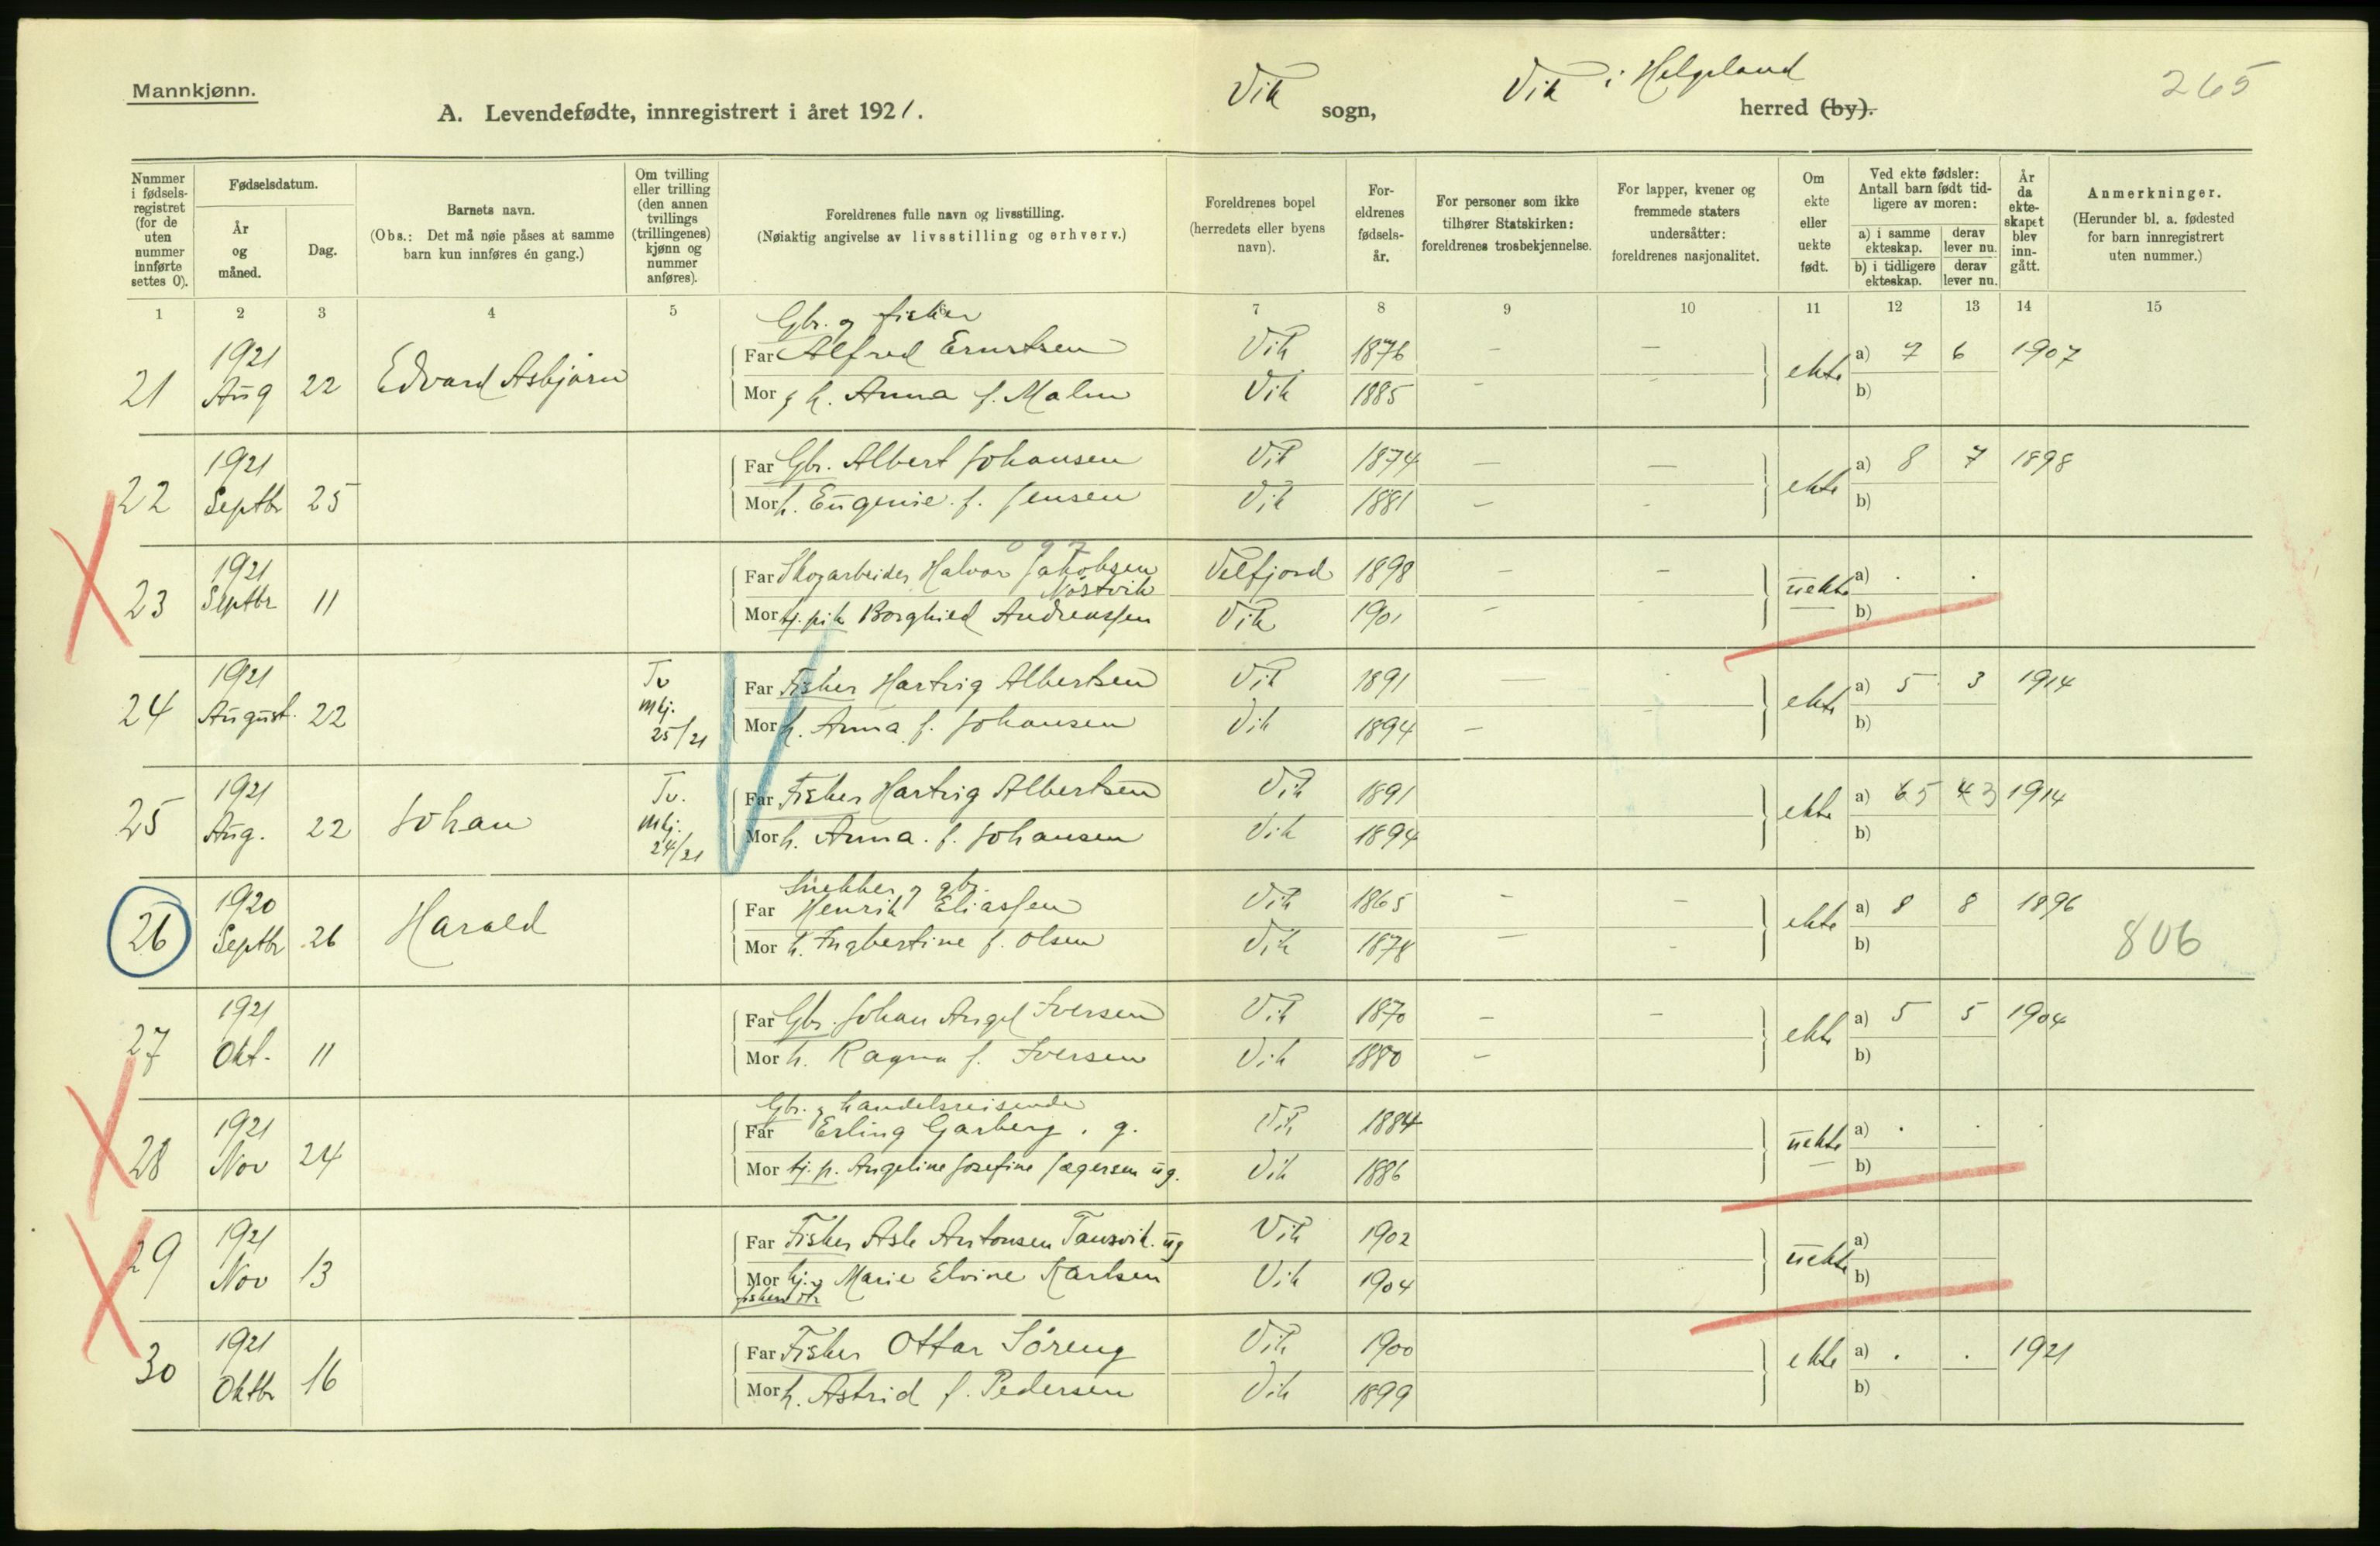 Mannkjønn.
A. Levendefødte, innregistrert i året 1921.
Vik sogn,
Vik i Helgeland herred (by).
265
Nummer i fødsels-registret (for de uten nummer innførte settes 0).
Fødselsdatum.
År og måned.
Dag.
Barnets navn.
(Obs.: Det må nøie påses at samme barn kun innføres én gang.)
Om tvilling eller trilling (den annen tvillings (trillingenes) kjønn og nummer anføres).
Foreldrenes fulle navn og livsstilling.
(Nøiaktig angivelse av livsstilling og erhverv.)
Foreldrenes bopel (herredets eller byens navn).
For-eldrenes fødsels-år.
For personer som ikke tilhører Statskirken: foreldrenes trosbekjennelse.
For lapper, kvener og fremmede staters undersåtter: foreldrenes nasjonalitet.
Om ekte eller uekte født.
Ved ekte fødsler: Antall barn født tid-ligere av moren:
a) i samme ekteskap.
derav lever nu.
b) i tidligere ekteskap.
derav lever nu.
År da ekte-skapet blev inn-gått.
Anmerkninger.
(Herunder bl. a. fødested for barn innregistrert uten nummer.)
1 2 3 4 5 6 7 8 9 10 11 12 13 14 15
Gbr. og fisker
21 1921 Aug 22 Edvard Asbjørn
Far Alfred Ernstsen Vik 1876 — —
Mor h. Anna f. Malm Vik 1885 - -
ekte a) 7 6 1907
b)
22 1921 Septbr 25
Far Gbr. Albert Johansen Vik 1874 — —
Mor h. Eugenie f. Jensen Vik 1881 — -
ekte a) 8 7 1898
b)
23 1921 Septbr 11
097
Far Skogarbeider Halvor Jakobsen Nøstvik Velfjord 1898 — —
Mor tj. pik Borghied Andreassen Vik 1901 —
uekte a) . .
b)
24 1921 August 22 Tv mkj. 25/21
Far Fisker Hartvig Albertsen Vik 1891 —
Mor h. Anna f. Johansen Vik 1894 —
ekte a) 5 3 1914
b)
25 1921 Aug. 22 Johan Tv. mkj. 24/21
Far Fisker Hartvig Albertsen Vik 1891
Mor h. Anna f. Johansen Vik 1894
ekte a) 65 43 1914
b)
26 1920 Septbr 26 Harald
Snekker og gbr.
Far Henrik Eliassen Vik 1865 — —
Mor h. Ingbertine f. Olsen Vik 1878 — -
ekte a) 8 8 1896
b)
806
27 1921 Okt. 11
Far Gbr. Johan Angel Iversen Vik 1870 — —
Mor h. Ragna f. Iversen Vik 1880 —
ekte a) 5 5 1904
b)
28 1921 Nov 24
Gbr. og handelsreisende
Far Erling Garberg. g. Vik 1884
Mor tj. p. Angeline Josefine Jægersen ug. Vik 1886
uekte a) . . .
b)
29 1921 Nov 13
Far Fisker Asle Antonsen Tansvik. ug Vik 1902
Mor Marie Elvine Karlsen Vik 1904
uekte a)
b)
30 1921 Oktbr 16
Far Fisker Ottar Søreng Vik 1900
Mor h. Astrid f. Pedersen Vik 1899
ekte a) . . 1921
b)